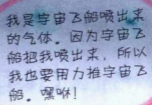 我是宇宙飞船喷出来
的气体。因为宇宙飞
船把我喷出来，所以
我也要用力推宇宙飞
船。嘿咻！